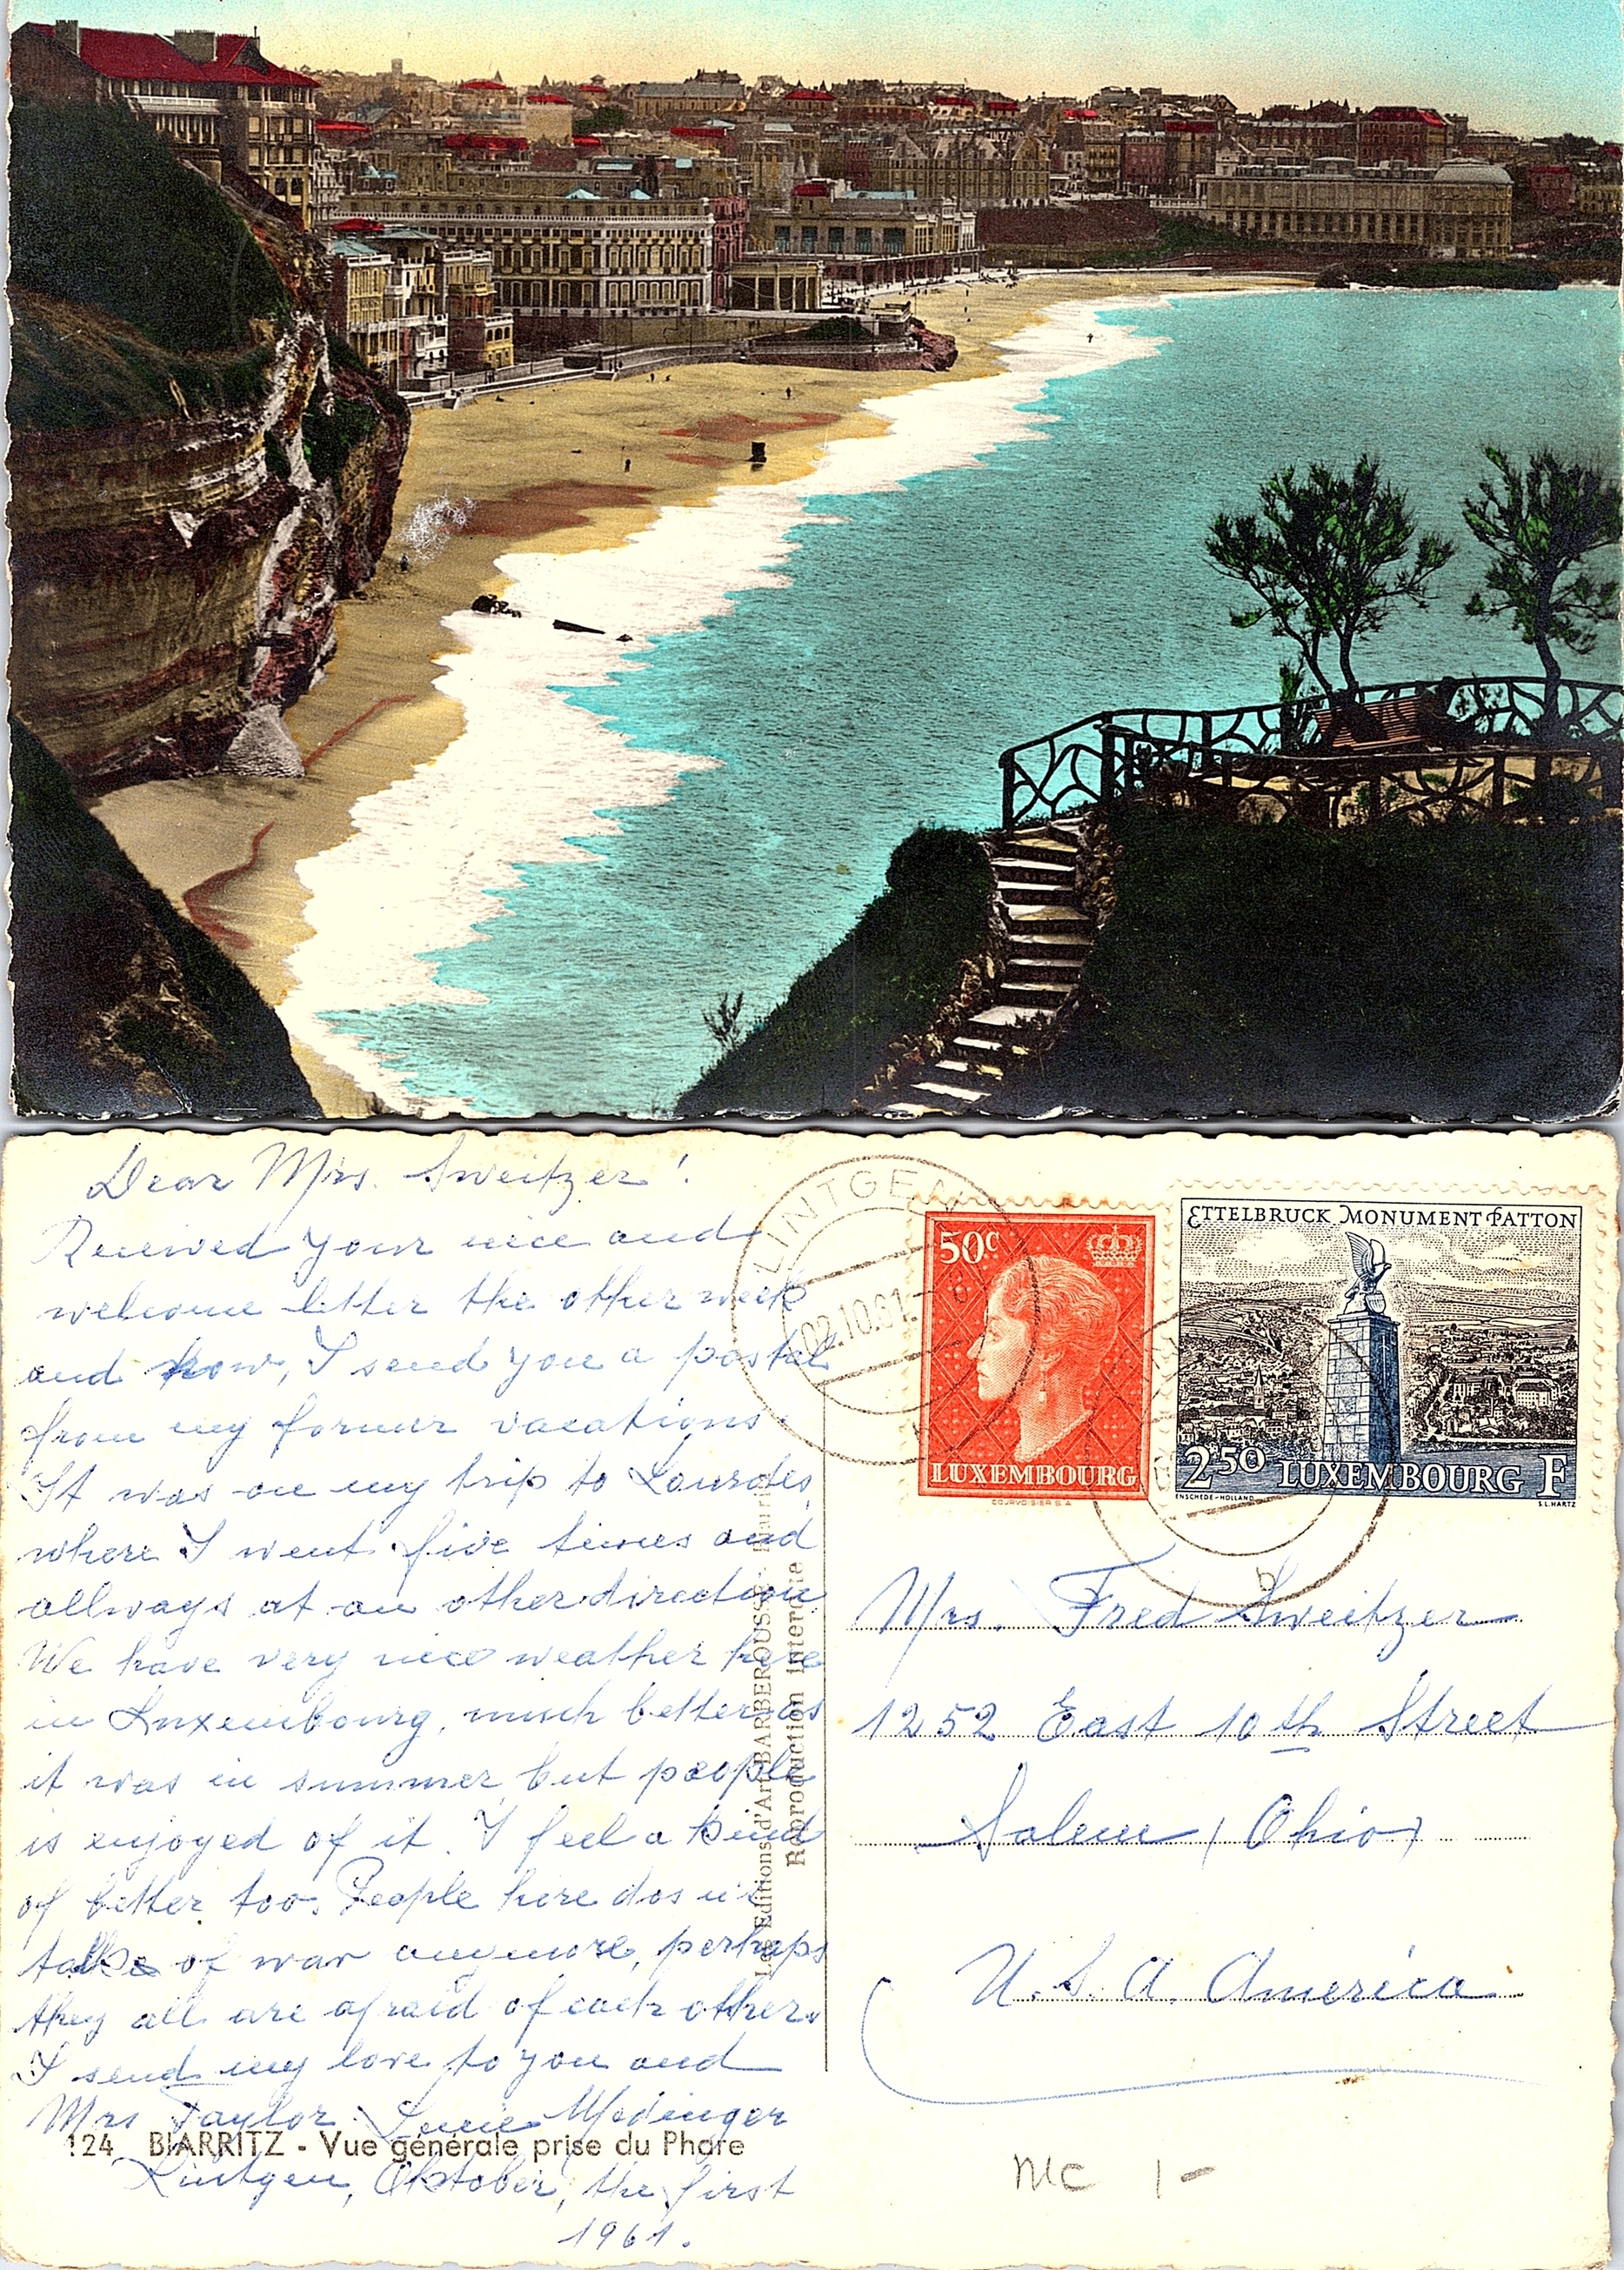 Dear Mrs. Sweitzer!
Received your nice and
welcome letter the other week
and now, I send you a postal
from my former vacations.
It was on my trip to Lourdes,
where I went five times and
allways at an other direction.
We have very nice weather here
in Luxembourg, much better as
it was in summer, but people
is enjoyed of it. I feel a kind
of better too. People here dos n't
talk of war anymore, perhaps
they all are afraid of each other.
I send my love to you and
Mrs Taylor. Medinger
124 BIARRITZ - Vue générale prise du Phare
Lintgen, Oktober, the first
1961.
Les Editions d'Art BARBEROUSSE
Reproduction Interdite
LINTGEN
02.10.61.
50c
LUXEMBOURG
COURVOISIER S.A.
ETTELBRUCK MONUMENT PATTON
2.50 LUXEMBOURG F
ENSCHEDE-HOLLAND
S.L. HARTZ
b
Mrs. Fred Sweitzer
1252 East 10th Street
Salem (Ohio)
U. S. A. America
1-